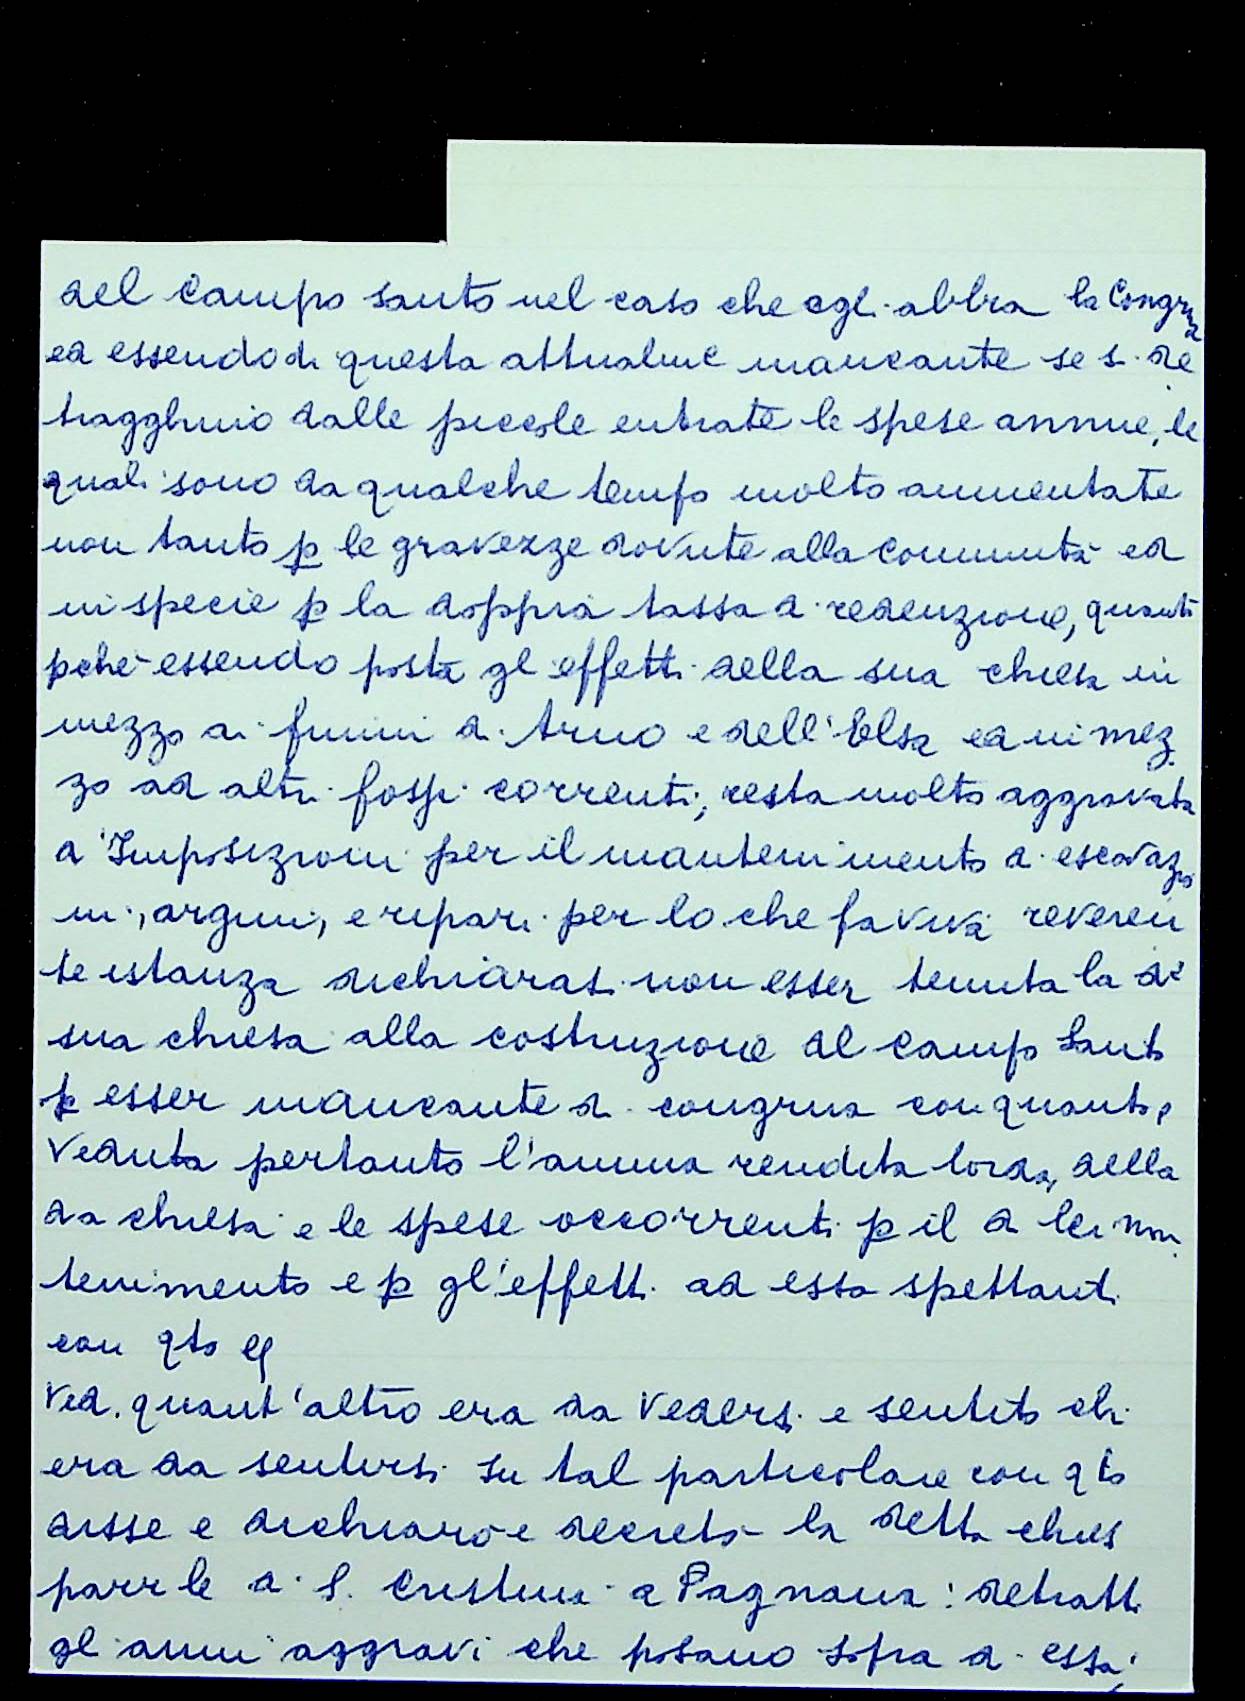 del Campo santo nel caso che egli abbia la Congrua
ed essendo di questa attualme mancante se si de
tragghino dalle piccole entrate le spese annue, le
quali sono da qualche tempo molto aumentate
non tanto p le gravezze dovute alla Comunità ed
in specie p la doppia tassa di redenzione, quanto
pchè essendo posta gl'effetti della sua chiesa in
mezzo ai fiumi di Arno e dell'Elsa ed in mez
zo ad altri fossi correnti, resta molto aggravata
d'Imposizioni per il mantenimento di escavazio
ni, argini, e ripari per lo che faviva reveren
te istanza dichiarasi non esser tenuta la da
sua chiesa alla costruzione del Campo Santo
p esser mancante di congrua con quanto,
Veduta pertanto l'annua rendita lorda, della
da chiesa e le spese occorrenti p il di lei man
tenimento e p gl'effetti ad essa spettanti
con qto
Ved. quant'altro era da Vedersi e sentito chi
era da sentirsi su tal particolare con qto
disse e dichiarò e decretò la detta chies
parrle di S. Cristina a Pagnana: detratti
gl'annui aggravi che posano sopra di essa;